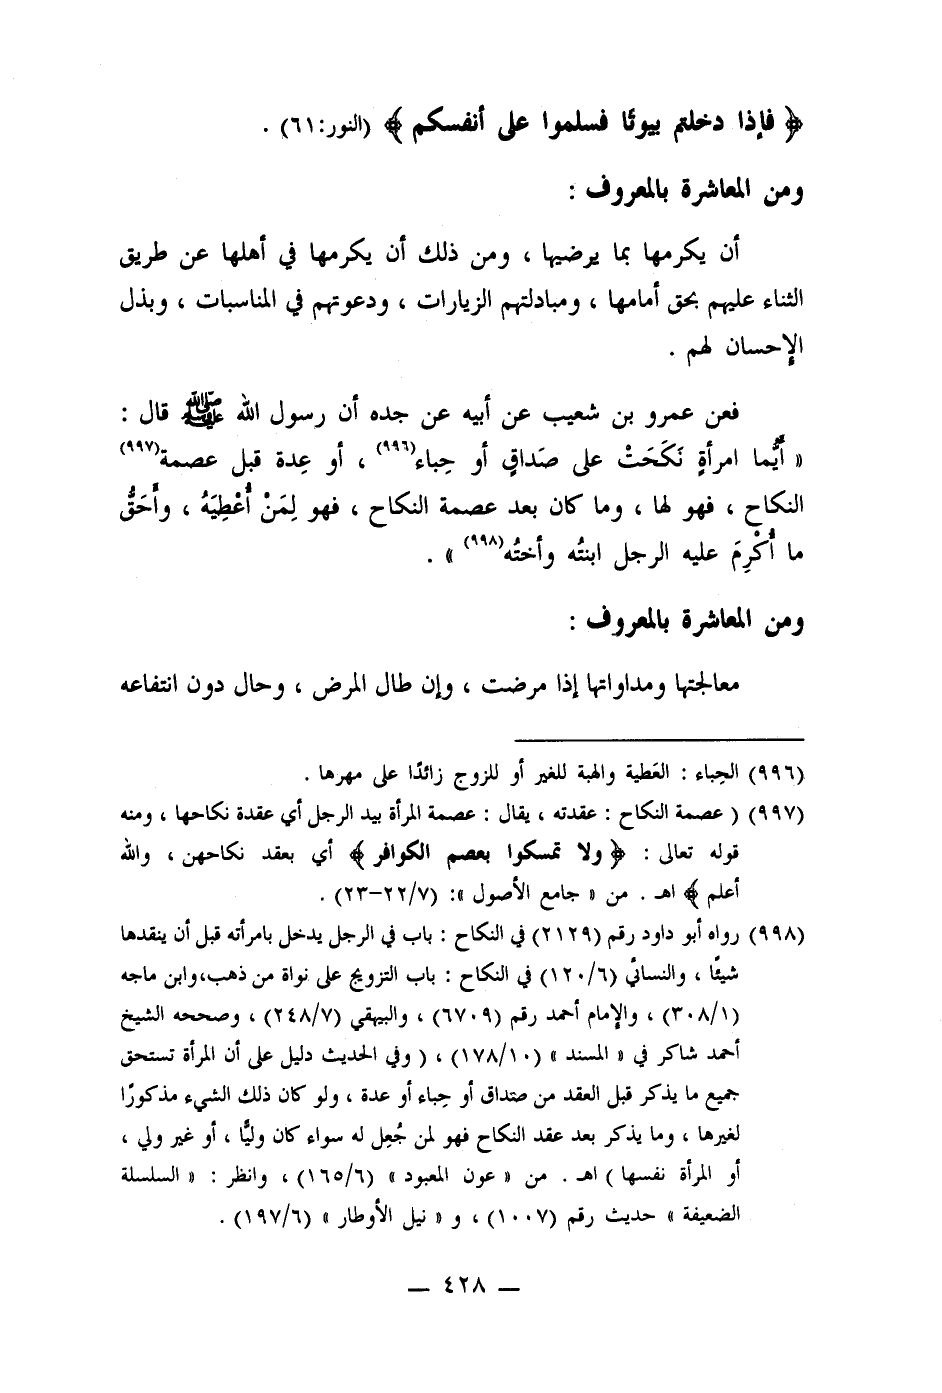 ﴿ فإذا دخلتم بيوتًا فسلموا على أنفسكم ﴾ (النور:٦١) .
ومن المعاشرة بالمعروف :
أن يكرمها بما يرضيها ، ومن ذلك أن يكرمها في أهلها عن طريق
الثناء عليهم بحق أمامها ، ومبادلتهم الزيارات ، ودعوتهم في المناسبات ، وبذل
الإحسان لهم .
فعن عمرو بن شعيب عن أبيه عن جده أن رسول الله ﷺ قال :
« أَيُّما امرأةٍ نَكَحَتْ على صَداقٍ أو حِباء(٩٩٦) ، أو عِدة قبل عصمة(٩٩٧)
النكاح ، فهو لها ، وما كان بعد عصمة النكاح ، فهو لِمَنْ أُعْطِيَهُ ، وأَحَقُّ
ما أُكْرِمَ عليه الرجل ابنتُه وأختُه(٩٩٨) » .
ومن المعاشرة بالمعروف :
معالجتها ومداواتها إذا مرضت ، وإن طال المرض ، وحال دون انتفاعه
(٩٩٦) الحِباء : العَطية والهبة للغير أو للزوج زائدًا على مهرها .
(٩٩٧) ( عصمة النكاح : عقدته ، يقال : عصمة المرأة بيد الرجل أي عقدة نكاحها ، ومنه
قوله تعالى : ﴿ ولا تمسكوا بعصم الكوافر ﴾ أي بعقد نكاحهن ، والله
أعلم ﴾ اهـ . من « جامع الأصول »: (٢٢/٧–٢٣) .
(٩٩٨) رواه أبو داود رقم (٢١٢٩) في النكاح : باب في الرجل يدخل بامرأته قبل أن ينقدها
شيئًا ، والنسائي (١٢٠/٦) في النكاح : باب التزويج على نواة من ذهب،وابن ماجه
(٣٠٨/١) ، والإمام أحمد رقم (٦٧٠٩) ، والبيهقي (٢٤٨/٧) ، وصححه الشيخ
أحمد شاكر في « المسند » (١٧٨/١٠) ، ( وفي الحديث دليل على أن المرأة تستحق
جميع ما يذكر قبل العقد من صَداق أو حِباء أو عدة ، ولو كان ذلك الشيء مذكورًا
لغيرها ، وما يذكر بعد عقد النكاح فهو لمن جُعِل له سواء كان وليًّا ، أو غير ولي ،
أو المرأة نفسها ) اهـ . من « عون المعبود » (١٦٥/٦) ، وانظر : « السلسلة
الضعيفة » حديث رقم (١٠٠٧) ، و « نيل الأوطار » (١٩٧/٦) .
— ٤٢٨ —